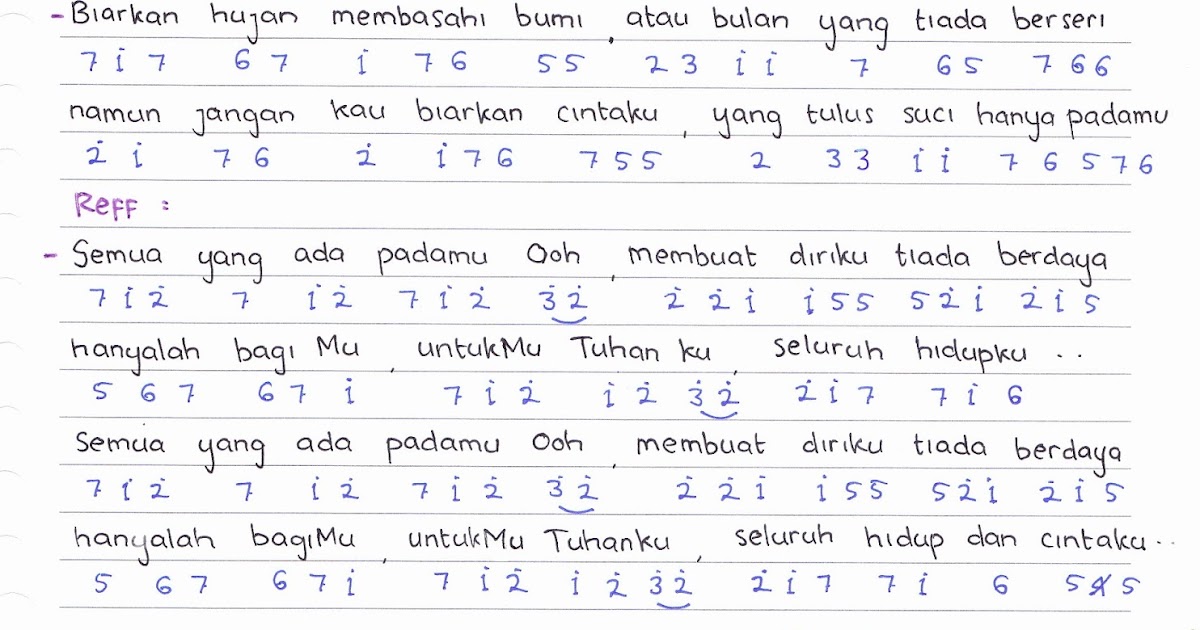 - Biarkan hujan membasahi bumi, atau bulan yang tiada berseri
7 i̇ 7 6 7 i̇ 7 6 5 5 2 3 i̇ i̇ 7 6 5 7 6 6
namun jangan kau biarkan cintaku, yang tulus suci hanya padamu
2̇ i̇ 7 6 2̇ i̇ 7 6 7 5 5 2 3 3 i̇ i̇ 7 6 5 7 6
Reff :
- Semua yang ada padamu Ooh, membuat diriku tiada berdaya
7 i̇ 2̇ 7 i̇ 2̇ 7 i̇ 2̇ 3̇ 2̇ 2̇ 2̇ i̇ i̇ 5 5 5 2̇ i̇ 2̇ i̇ 5
hanyalah bagi Mu, untukMu Tuhan ku, seluruh hidupku ..
5 6 7 6 7 i̇ 7 i̇ 2̇ i̇ 2̇ 3̇ 2̇ 2̇ i̇ 7 7 i̇ 6
Semua yang ada padamu Ooh, membuat diriku tiada berdaya
7 i̇ 2̇ 7 i̇ 2̇ 7 i̇ 2̇ 3̇ 2̇ 2̇ 2̇ i̇ i̇ 5 5 5 2̇ i̇ 2̇ i̇ 5
hanyalah bagiMu, untukMu Tuhanku, seluruh hidup dan cintaku ..
5 6 7 6 7 i̇ 7 i̇ 2̇ i̇ 2̇ 3̇ 2̇ 2̇ i̇ 7 7 i̇ 6 5 5